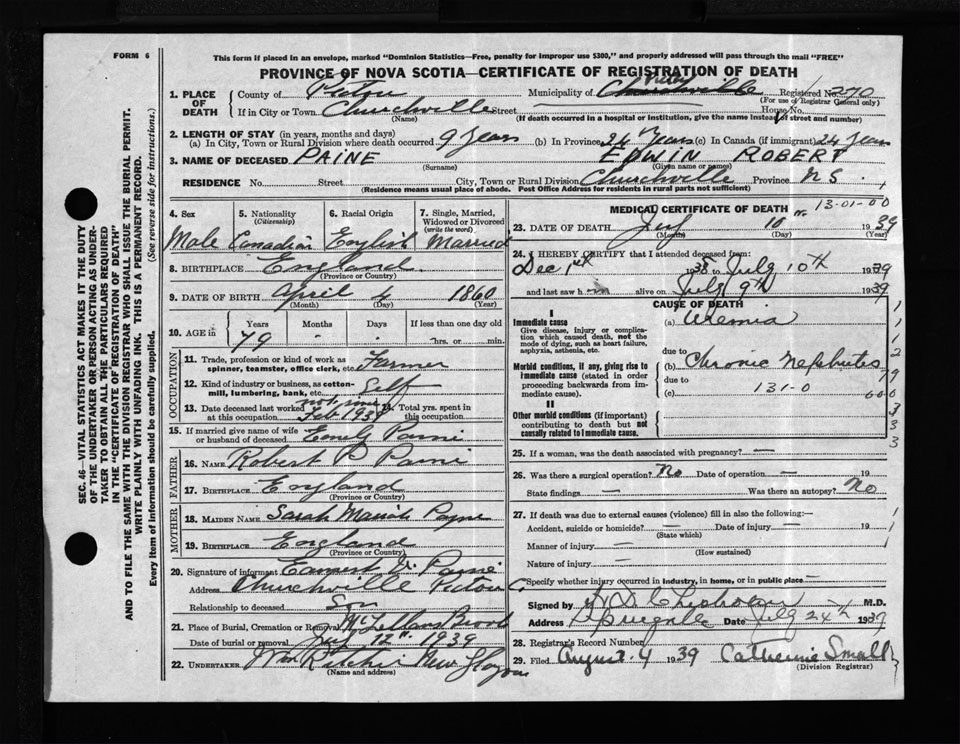 FORM 6
This form if placed in an envelope, marked "Dominion Statistics—Free, penalty for improper use $300," and properly addressed will pass through the mail "FREE"
PROVINCE OF NOVA SCOTIA—CERTIFICATE OF REGISTRATION OF DEATH
1. PLACE OF DEATH
County of Pictou Municipality of Churchville Registered No. 270
(For use of Registrar General only)
If in City or Town Churchville Street House No.
(Name) (If death occurred in a hospital or institution, give the name instead of street and number)
2. LENGTH OF STAY (in years, months and days)
(a) In City, Town or Rural Division where death occurred 9 Years (b) In Province 24 Years (c) In Canada (if immigrant) 24 Years
3. NAME OF DECEASED PAINE EDWIN ROBERT
(Surname) (Given name or names)
RESIDENCE No. Street City, Town or Rural Division Churchville Province N S.
(Residence means usual place of abode. Post Office Address for residents in rural parts not sufficient)
4. Sex
Male
5. Nationality
(Citizenship)
Canadian
6. Racial Origin
English
7. Single, Married, Widowed or Divorced
(write the word)
Married
8. BIRTHPLACE England
(Province or Country)
9. DATE OF BIRTH April 4 1860
(Month) (Day) (Year)
10. AGE in
Years Months Days If less than one day old
79 hrs. or min.
OCCUPATION
11. Trade, profession or kind of work as spinner, teamster, office clerk, etc. Farmer
12. Kind of industry or business, as cotton-mill, lumbering, bank, etc. Self
13. Date deceased last worked at this occupation not since Feb 193
14. Total yrs. spent in this occupation
15. If married give name of wife or husband of deceased Emily Paine
FATHER
16. NAME Robert P Paine
17. BIRTHPLACE England
(Province or Country)
MOTHER
18. MAIDEN NAME Sarah Payne
19. BIRTHPLACE England
(Province or Country)
20. Signature of informant Earnest Paine
Address Churchville Pictou Co
Relationship to deceased Son
21. Place of Burial, Cremation or Removal McLellans Brook
Date of burial or removal July 12th 1939
22. UNDERTAKER Wm Ritchie New Glasgow
(Name and address)
MEDICAL CERTIFICATE OF DEATH
13-01-00
23. DATE OF DEATH July 10 1939
(Month) (Day) (Year)
24. I HEREBY CERTIFY that I attended deceased from:
Dec 1st 1938 to July 10th 1939
and last saw h im alive on July 9th 1939
CAUSE OF DEATH
I
Immediate cause
Give disease, injury or complication which caused death, not the mode of dying, such as heart failure, asphyxia, asthenia, etc.
(a) Uremia
due to
Morbid conditions, if any, giving rise to immediate cause (stated in order proceeding backwards from immediate cause).
(b) Chronic Nephritis
due to
131-0
(c)
II
Other morbid conditions (if important) contributing to death but not causally related to immediate cause.
25. If a woman, was the death associated with pregnancy? —
26. Was there a surgical operation? No Date of operation — 19
State findings — Was there an autopsy? No
27. If death was due to external causes (violence) fill in also the following:—
Accident, suicide or homicide? — Date of injury — 19
(State which)
Manner of injury —
(How sustained)
Nature of injury —
Specify whether injury occurred in industry, in home, or in public place —
Signed by Chisholm M.D.
Address Date July 24th 1939
28. Registrar's Record Number
29. Filed August 4 1939 Catherine Small
(Division Registrar)
SEC. 46—VITAL STATISTICS ACT MAKES IT THE DUTY
OF THE UNDERTAKER OR PERSON ACTING AS UNDER-
TAKER TO OBTAIN ALL THE PARTICULARS REQUIRED
IN THE "CERTIFICATE OF REGISTRATION OF DEATH"
AND TO FILE THE SAME WITH THE DIVISION REGISTRAR WHO SHALL ISSUE THE BURIAL PERMIT.
WRITE PLAINLY WITH UNFADING INK. THIS IS A PERMANENT RECORD.
Every item of information should be carefully supplied. (See reverse side for instructions.)